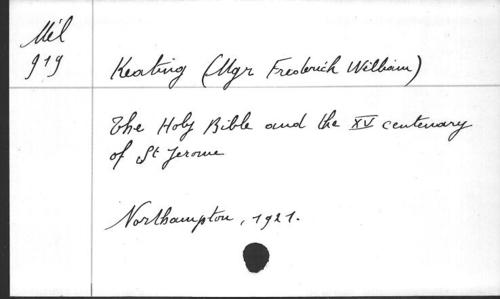 Mél
919
Keating (Mgr Frederick William)
The Holy Bible and the XV centenary
of St Jerome
Northampton, 1921.